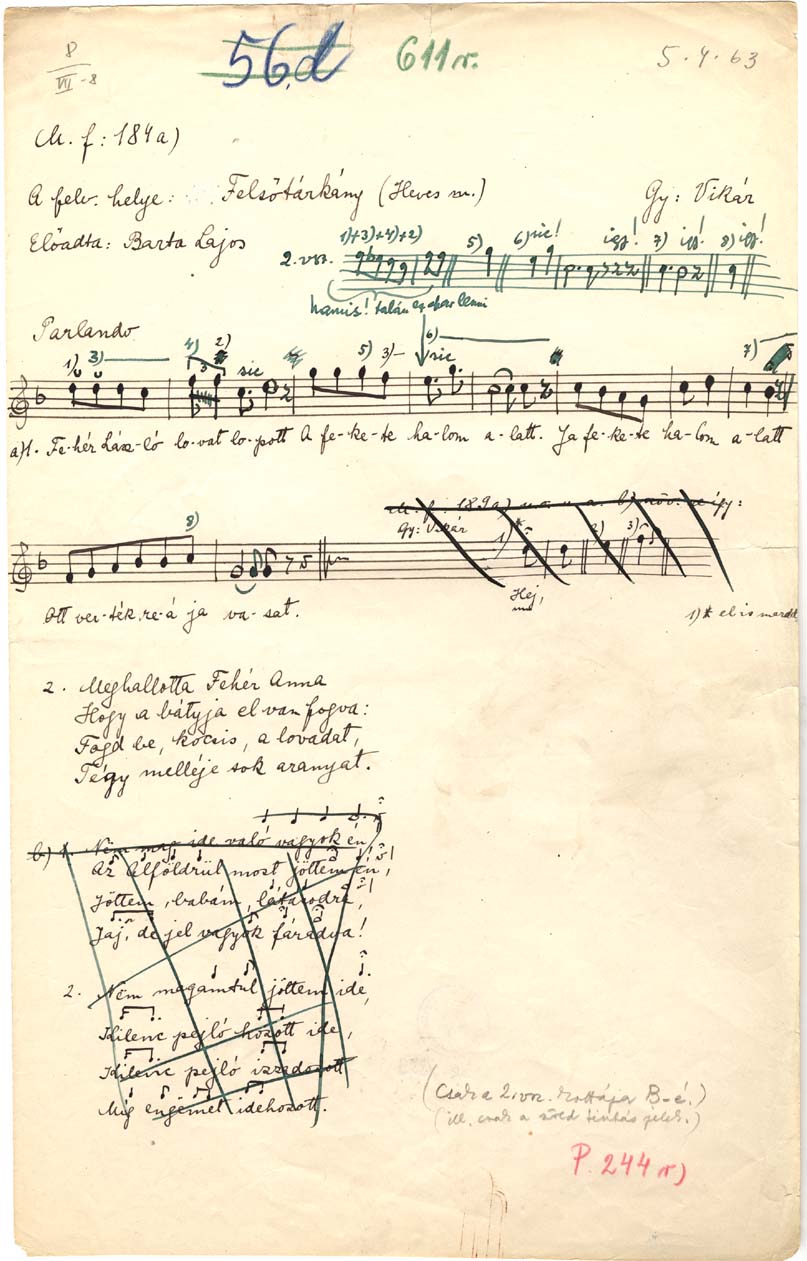 8
VII -8
56d
611r.
5.4.63
M. f: 184a)
A felv. helye: Felsőtárkány (Heves m.)
Gy: Vikár
Előadta: Barta Lajos
1)+3)+4)+2) 5) 6) sic! így! 7) így! 8) így!
2. vsz.
hamis! talán ez akar lenni
Parlando
1) 3) 4) 2) sic 5) 3) 6) sic 7)
3
a) 1. Fe-hér Lász-ló lo-vat lo-pott A fe-ke-te ha-lom a-latt. Ja fe-ke-te ha-lom a-latt
8)
M. f. 189a)
Gy: Vikár
1) 2) 3)
Hej,
Ott ver-ték re-á ja va-sat.
1)
2. Meghallotta Fehér Anna
Hogy a bátyja el van fogva:
Fogd be, kocsis, a lovadat,
Tégy melléje sok aranyat.
b) 1. Nem meg ide való vagyok én,
Az Alföldrül most jöttem én,
Jöttem, babám, látásodra,
Jaj, de jel vagyok fáradva!
2. Nem magamtul jöttem ide,
Kilenc pejló hozott ide,
Kilenc pejló izzadozott
Míg engemet idehozott.
(Csak a 2. vsz. kottája B-é.)
(ill. csak a zöld tintás jelek.)
P. 244 r)